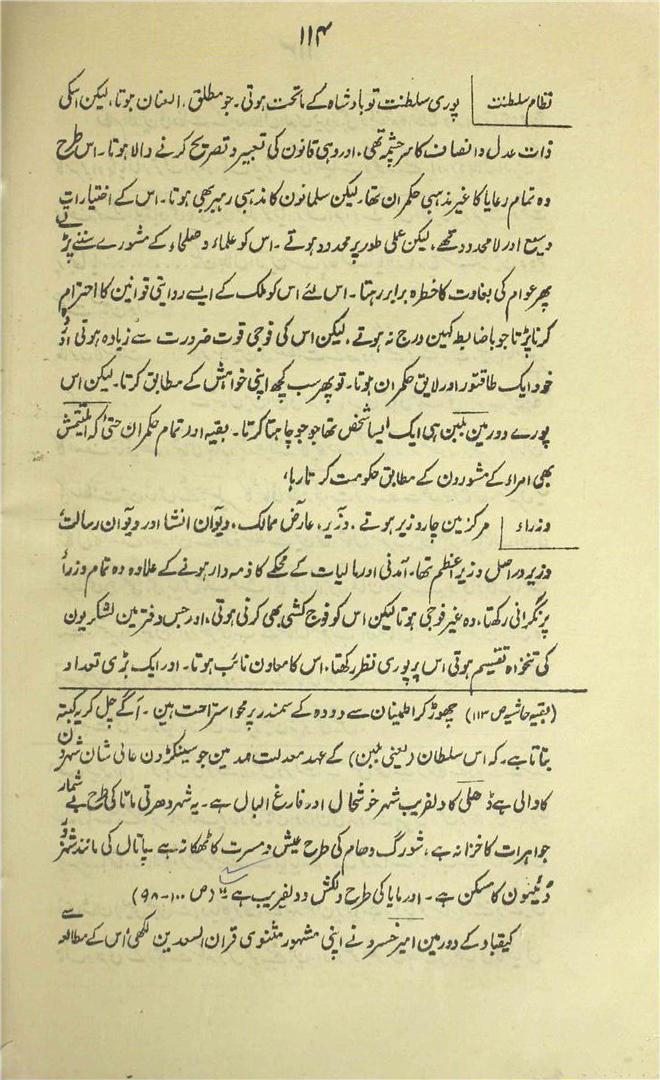 ۱۱۴
نظام سلطنت پوری سلطنت تو بادشاہ کے ماتحت ہوتی۔ جو مطلق العنان ہوتا، لیکن اسکی
ذات عدل و انصاف کا سرچشمہ تھی، اور وہی قانون کی تعبیر و تصریح کرنے والا ہوتا۔ اس طرح
وہ تمام رعایا کا غیر مذہبی حکمران تھا، لیکن مسلمانون کا مذہبی رہبر بھی ہوتا۔ اس کے اختیارات
وسیع اور لا محدود تھے، لیکن عملی طور پر محدود ہوتے۔ اس کو علماء و صلحاء کے مشورے سننے پڑتے
پھر عوام کی بغاوت کا خطرہ برابر رہتا۔ اس لئے اس کو ملک کے ایسے روایتی قوانین کا احترام
کرنا پڑتا جو باضابطہ کہین درج نہ ہوتے، لیکن اس کی فوجی قوت ضرورت سے زیادہ ہوتی اور وہ
خود ایک طاقتور اور لایق حکمران ہوتا۔ تو پھر سب کچھ اپنی خواہش کے مطابق کرتا۔ لیکن اس
پورے دور مین بلبن ہی ایک ایسا شخص تھا جو جو چاہتا کرتا۔ بقیہ اور تمام حکمران حتیٰ کہ ایلتتمش
بھی امراء کے مشورون کے مطابق حکومت کرتا رہا،
وزراء مرکز مین چار وزیر ہوتے، وزیر، عارض ممالک، دیوان انشا اور دیوان رسالت
وزیر در اصل وزیر اعظم تھا۔ آمدنی اور مالیات کے محکمے کا ذمہ دار ہونے کے علاوہ وہ تمام وزراء
پر نگرانی رکھتا، وہ غیر فوجی ہوتا لیکن اس کو فوج کشی بھی کرنی ہوتی، اور جس دفتر مین لشکریون
کی تنخواہ تقسیم ہوتی اس پر پوری نظر رکھتا، اس کا معاون نائب ہوتا۔ اور ایک بڑی تعداد
(بقیہ حاشیہ ص ۱۱۳) چھوڑ کر اطمینان سے دودہ کے سمندر پر محو استراحت ہین۔ آگے چل کر یہ کتبہ
بتاتا ہے۔ کہ اس سلطان (یعنی بلبن) کے عہد معدلت مہد مین جو سینکڑون عالی شان شہرون
کا والی ہے ڈھلی کا دلفریب شہر خوشحال اور فارغ البال ہے۔ یہ شہر دھرتی ماتا کی طرح بے شمار
جواہرات کا خزانہ ہے، شورگ دھام کی طرح عیش و مسرت کا ٹھکانہ ہے پاتال کی مانند شہزور
دئیتون کا مسکن ہے۔ اور مایا کی طرح دلکش و دلفریب ہے (ص ۱۰۰-۹۸)
کیقباد کے دور مین امیر خسرو نے اپنی مشہور مثنوی قران السعدین لکھی اُس کے مطالعہ سے